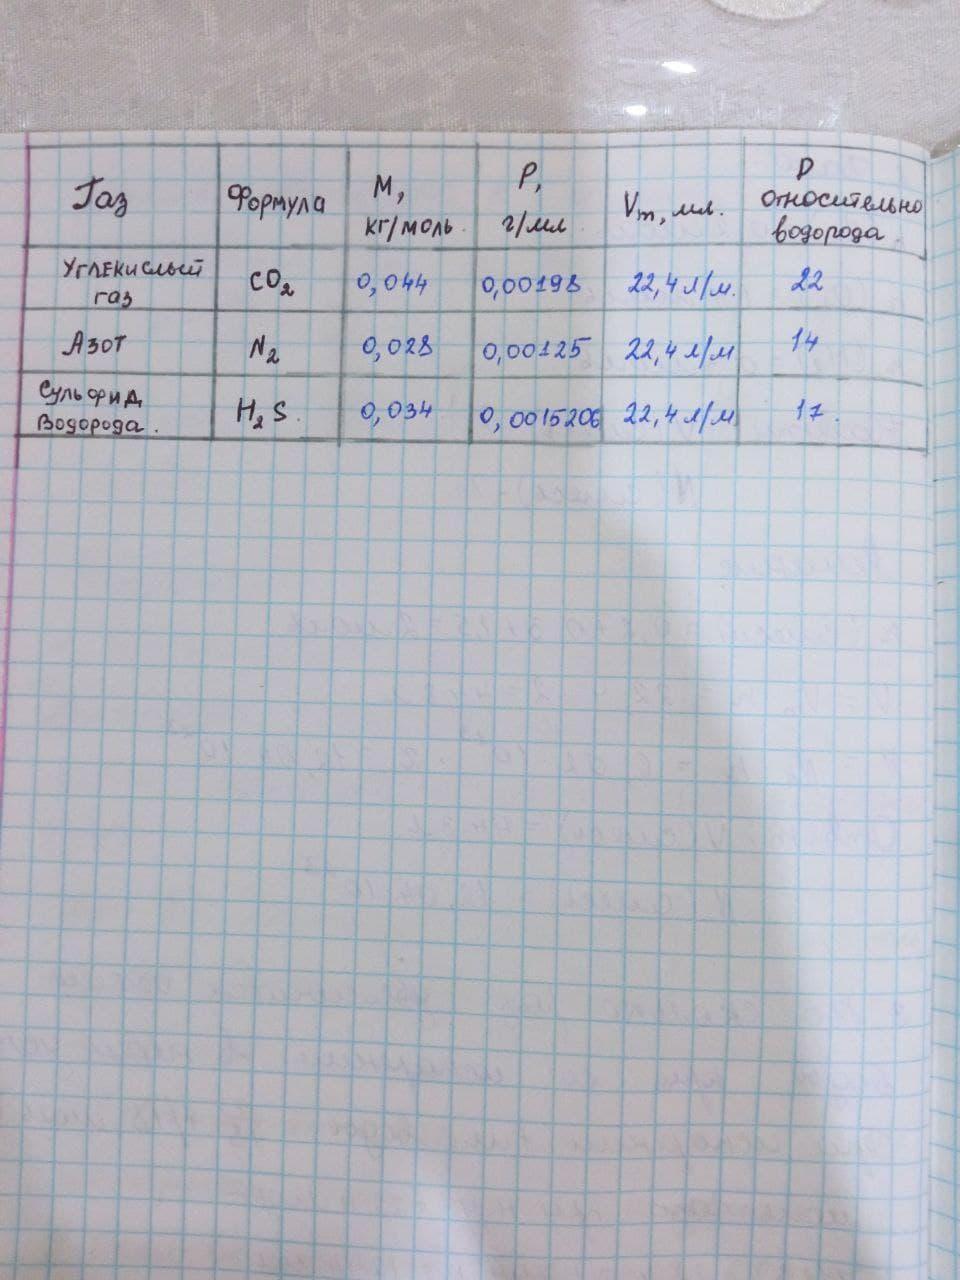 Газ Формула М, кг/моль Р, г/мл Vm, мл. D относительно водорода.
Углекислый газ CO2 0,044 0,00198 22,4 л/м. 22
Азот N2 0,028 0,00125 22,4 л/м 14
Сульфид Водорода. H2S 0,034 0,0015206 22,4 л/м 17